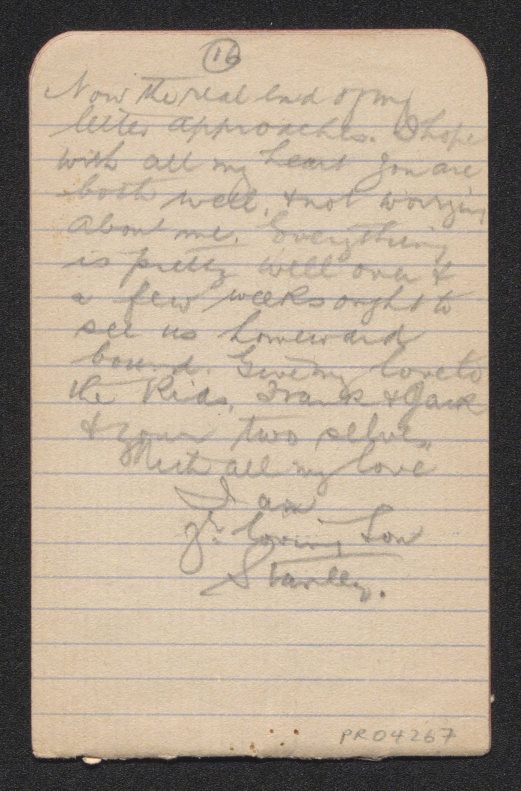 16
Now the real end of my
letter approaches. I hope
with all my heart you are
both well, & not worrying
about me. Everything
is pretty well over &
a few weeks ought to
see us homeward
bound. Give my love to
the Kids, Frank & Jack
& your two selves,
With all my love
I am
yr. loving Son
Stanley.
PR04267